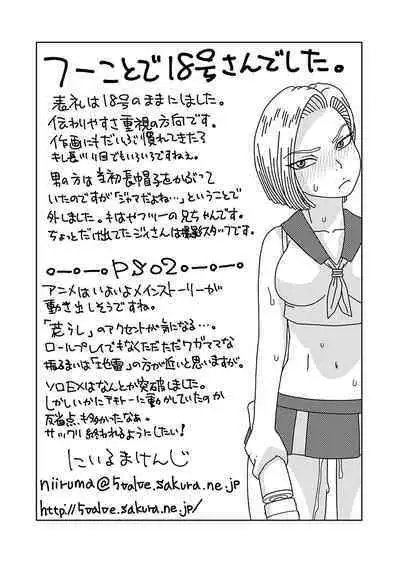 フーことで18号さんでした。
表札は18号のままにしました。
伝わりやすさ重視の方向です。
作画にもだいぶ慣れてきたら
キし長い1日でもいろいろですねぇ。
男の方は最初長帽子をかぶって
いたのですが「ジャマだよね…」ということで
外しました。キはセフリーの兄ちゃんです。
ちょっとだけ出てたジイさんは撮影スタッフです。
PSO2
アニメはいよいよメインストーリーが
動き出しそうですね。
のアクセントが気になる…。
ロールプレイでもなくただただワガママな
振るまいは「地雷」の方が近いと思いますが。
ソロEXはなんとか突破しました。
しかしいかにアキトーに動かしていたのか
反省点も多かったなぁ。
サックリ終われるようにしたい!
にいるまけんじ
niiruma@5valve.sakura.ne.jp
http://5valve.sakura.ne.jp/